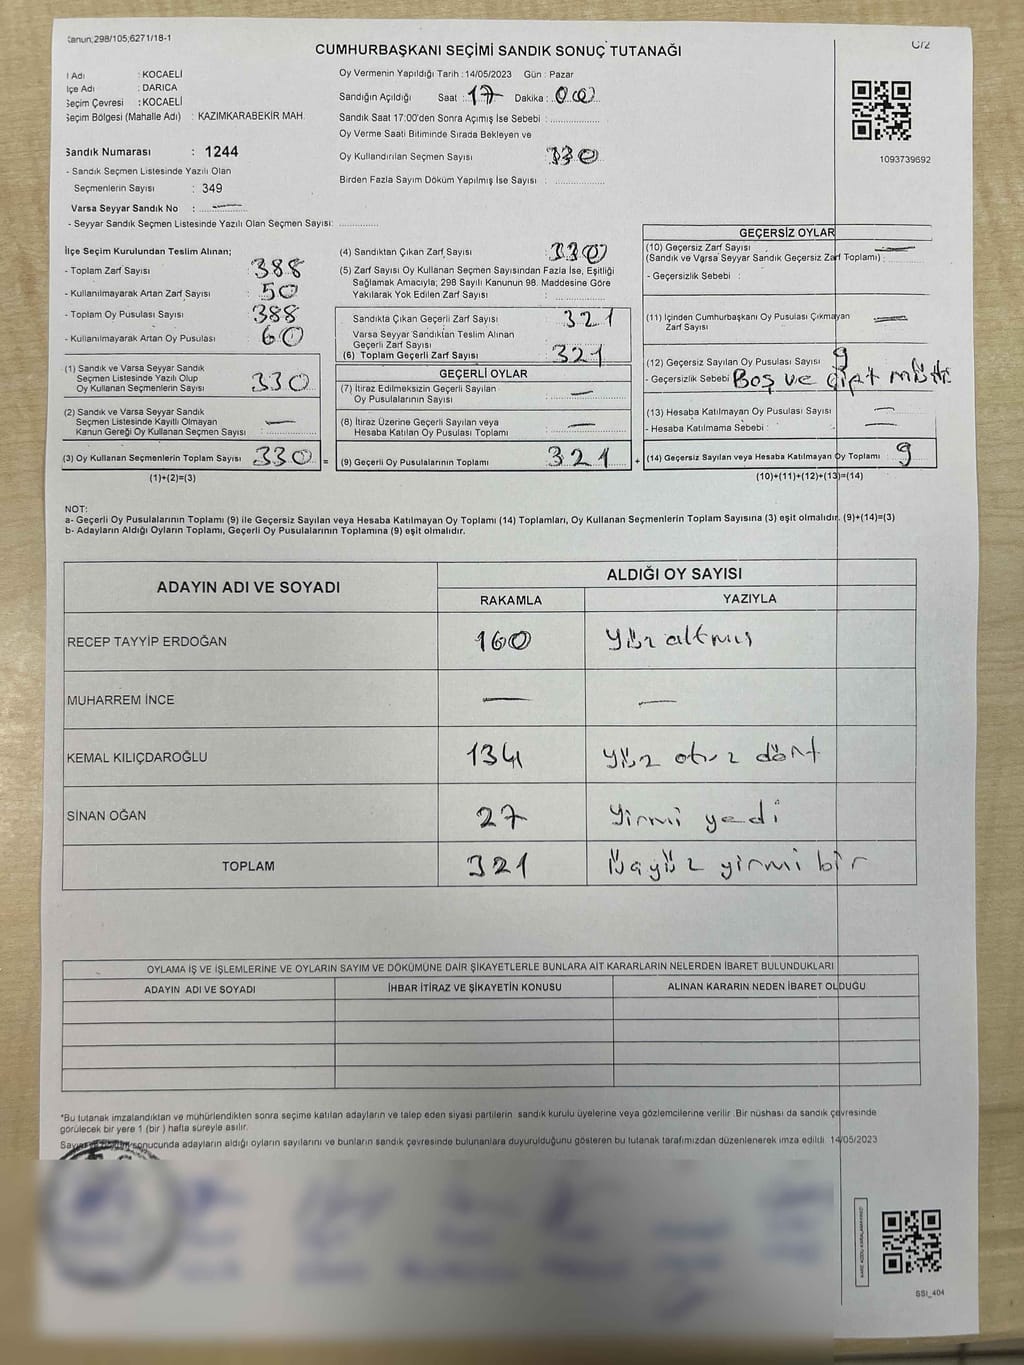 Kanun;298/105;6271/18-1
CUMHURBAŞKANI SEÇİMİ SANDIK SONUÇ TUTANAĞI
C/2
İl Adı : KOCAELİ
İlçe Adı : DARICA
Seçim Çevresi : KOCAELİ
Seçim Bölgesi (Mahalle Adı) : KAZIMKARABEKİR MAH.
Sandık Numarası : 1244
- Sandık Seçmen Listesinde Yazılı Olan
Seçmenlerin Sayısı : 349
Varsa Seyyar Sandık No : —
- Seyyar Sandık Seçmen Listesinde Yazılı Olan Seçmen Sayısı:
Oy Vermenin Yapıldığı Tarih :14/05/2023 Gün : Pazar
Sandığın Açıldığı Saat : 17 Dakika : 00
Sandık Saat 17:00'den Sonra Açımış İse Sebebi :
Oy Verme Saati Bitiminde Sırada Bekleyen ve
Oy Kullandırılan Seçmen Sayısı 330
Birden Fazla Sayım Döküm Yapılmış İse Sayısı :
1093739692
İlçe Seçim Kurulundan Teslim Alınan;
- Toplam Zarf Sayısı : 388
- Kullanılmayarak Artan Zarf Sayısı : 50
- Toplam Oy Pusulası Sayısı : 388
- Kullanılmayarak Artan Oy Pusulası : 60
(1) Sandık ve Varsa Seyyar Sandık
Seçmen Listesinde Yazılı Olup
Oy Kullanan Seçmenlerin Sayısı : 330
(2) Sandık ve Varsa Seyyar Sandık
Seçmen Listesinde Kayıtlı Olmayan
Kanun Gereği Oy Kullanan Seçmen Sayısı : —
(3) Oy Kullanan Seçmenlerin Toplam Sayısı : 330
(1)+(2)=(3)
(4) Sandıktan Çıkan Zarf Sayısı : 330
(5) Zarf Sayısı Oy Kullanan Seçmen Sayısından Fazla İse, Eşitliği
Sağlamak Amacıyla; 298 Sayılı Kanunun 98. Maddesine Göre
Yakılarak Yok Edilen Zarf Sayısı :
Sandıkta Çıkan Geçerli Zarf Sayısı : 321
Varsa Seyyar Sandıktan Teslim Alınan
Geçerli Zarf Sayısı :
(6) Toplam Geçerli Zarf Sayısı : 321
GEÇERLİ OYLAR
(7) İtiraz Edilmeksizin Geçerli Sayılan
Oy Pusulalarının Sayısı : —
(8) İtiraz Üzerine Geçerli Sayılan veya
Hesaba Katılan Oy Pusulası Toplamı : —
= (9) Geçerli Oy Pusulalarının Toplamı : 321
GEÇERSİZ OYLAR
(10) Geçersiz Zarf Sayısı —
(Sandık ve Varsa Seyyar Sandık Geçersiz Zarf Toplamı) :
- Geçersizlik Sebebi :
(11) İçinden Cumhurbaşkanı Oy Pusulası Çıkmayan
Zarf Sayısı : —
(12) Geçersiz Sayılan Oy Pusulası Sayısı : 9
- Geçersizlik Sebebi : Boş ve çift
(13) Hesaba Katılmayan Oy Pusulası Sayısı : —
- Hesaba Katılmama Sebebi : —
+ (14) Geçersiz Sayılan veya Hesaba Katılmayan Oy Toplamı : 9
(10)+(11)+(12)+(13)=(14)
NOT:
a- Geçerli Oy Pusulalarının Toplamı (9) ile Geçersiz Sayılan veya Hesaba Katılmayan Oy Toplamı (14) Toplamları, Oy Kullanan Seçmenlerin Toplam Sayısına (3) eşit olmalıdır. (9)+(14)=(3)
b- Adayların Aldığı Oyların Toplamı, Geçerli Oy Pusulalarının Toplamına (9) eşit olmalıdır.
ADAYIN ADI VE SOYADI ALDIĞI OY SAYISI
RAKAMLA YAZIYLA
RECEP TAYYİP ERDOĞAN 160 Yüz altmış
MUHARREM İNCE — —
KEMAL KILIÇDAROĞLU 134 Yüz otuz dört
SİNAN OĞAN 27 Yirmi yedi
TOPLAM 321 Üçyüz yirmi bir
OYLAMA İŞ VE İŞLEMLERİNE VE OYLARIN SAYIM VE DÖKÜMÜNE DAİR ŞİKAYETLERLE BUNLARA AİT KARARLARIN NELERDEN İBARET BULUNDUKLARI
ADAYIN ADI VE SOYADI İHBAR İTİRAZ VE ŞİKAYETİN KONUSU ALINAN KARARIN NEDEN İBARET OLDUĞU
*Bu tutanak imzalandıktan ve mühürlendikten sonra seçime katılan adayların ve talep eden siyasi partilerin sandık kurulu üyelerine veya gözlemcilerine verilir .Bir nüshası da sandık çevresinde
görülecek bir yere 1 (bir ) hafta süreyle asılır.
sonucunda adayların aldığı oyların sayılarını ve bunların sandık çevresinde bulunanlara duyurulduğunu gösteren bu tutanak tarafımızdan düzenlenerek imza edildi. 14/05/2023
KARE KODU KARALAMAYINIZ!
SSI_404